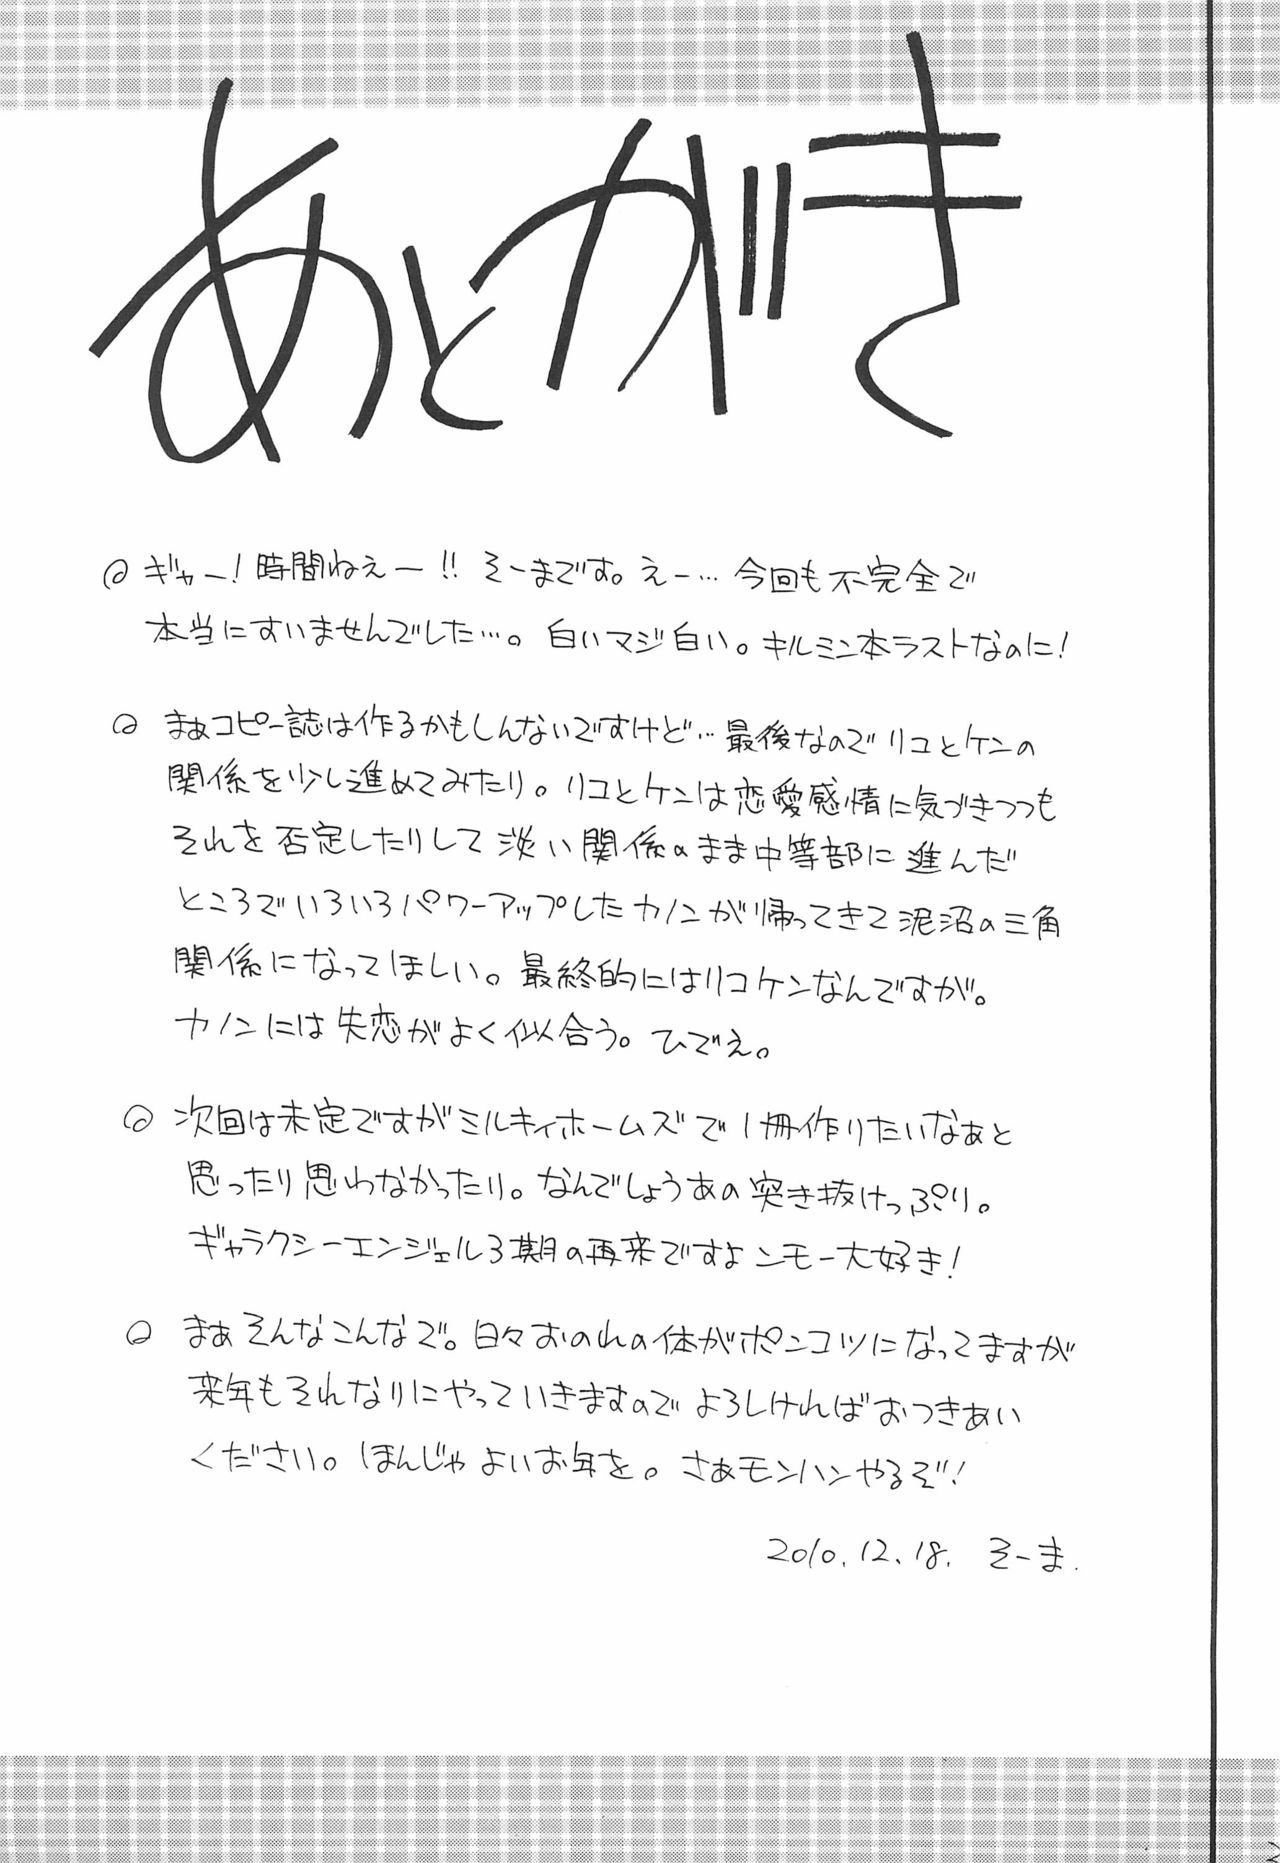 あとがき
ギャー！時間ねぇー！！そーまです。えー…今回も不完全で
本当にすいませんでした…。白いマジ白い。キルミン本ラストなのに！
まぁコピー誌は作るかもしんないですけど…最後なのでリコとケンの
関係を少し進めてみたり。リコとケンは恋愛感情に気づきつつも
それを否定したりして淡い関係のまま中等部に進んだ
ところでいろいろパワーアップしたカノンが帰ってきて泥沼の三角
関係になってほしい。最終的にはリコケンなんですが。
カノンには失恋がよく似合う。ひでぇ。
次回は未定ですがミルキィホームズで1冊作りたいなぁと
思ったり思わなかったり。なんでしょうあの突き抜けっぷり。
ギャラクシーエンジェル3期の再来ですよンモー大好き！
まぁそんなこんなで。日々おのれの体がポンコツになってますが
来年もそれなりにやっていきますのでよろしければおつきあい
ください。ほんじゃよいお年を。さぁモンハンやるぞ！
2010.12.18. そーま.